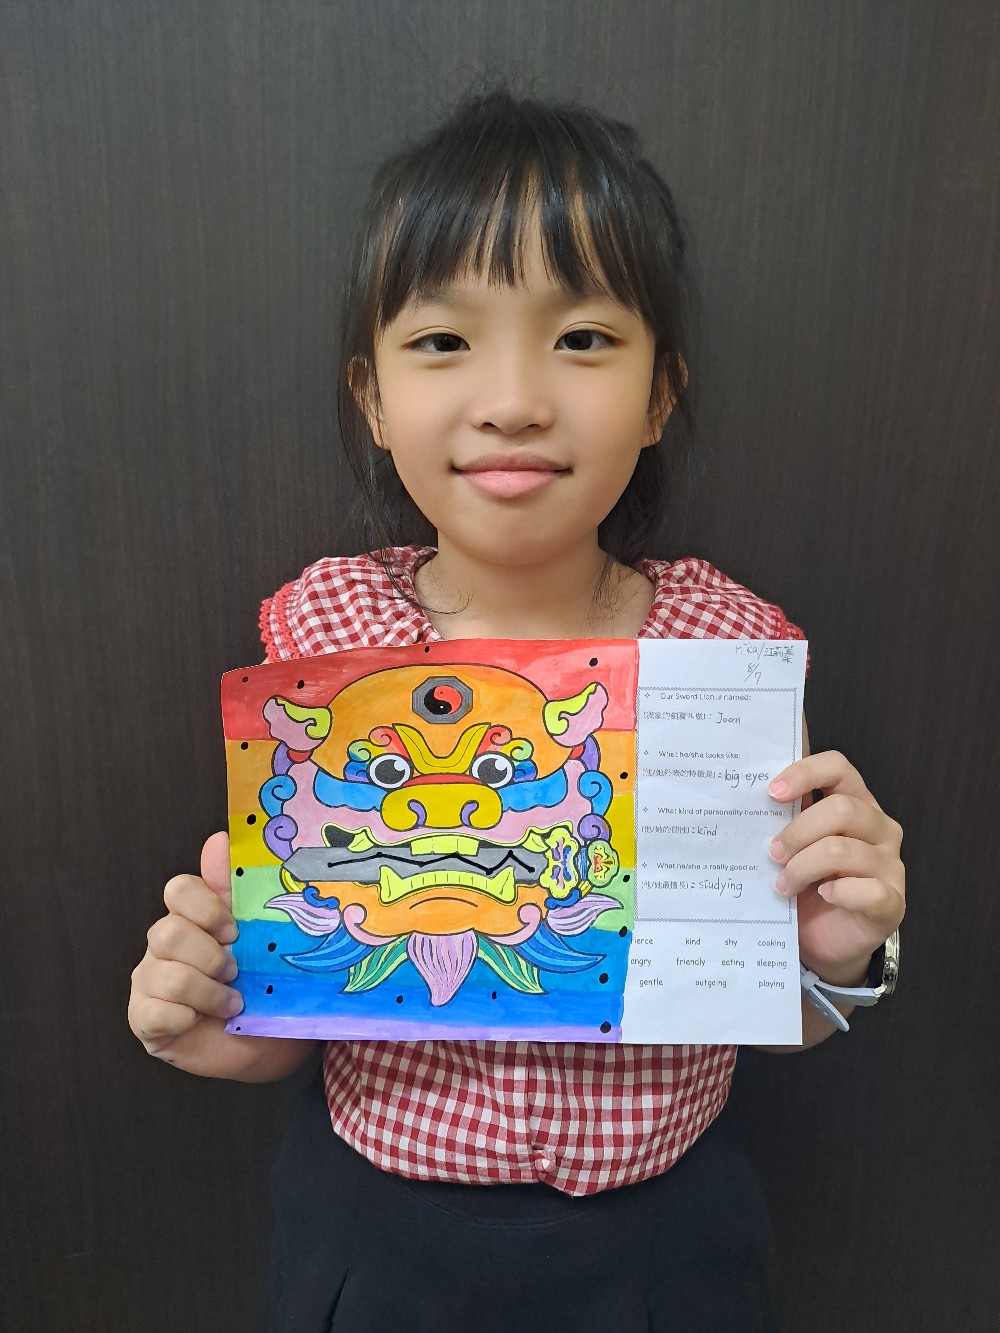 Mika/江莉葇
8/7
Our Sword Lion is named:
(我家的劍獅叫做): Joan
What he/she looks like:
(他/她外表的特徵是): big eyes
What kind of personality he/she has:
(他/她的個性): kind
What he/she is really good at:
(他/她最擅長): studying
fierce kind shy cooking
angry friendly eating sleeping
gentle outgoing playing